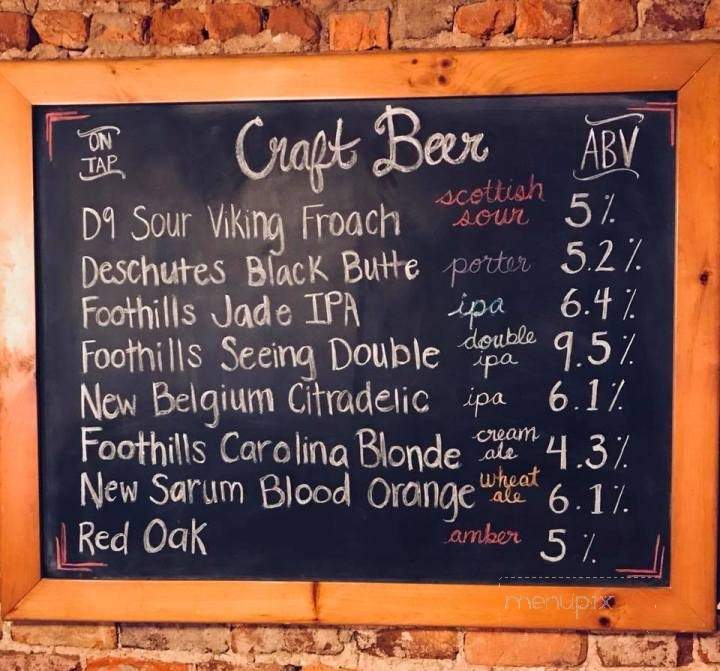 ON
TAP
Craft Beer
ABV
D9 Sour Viking Froach scottish sour 5%
Deschutes Black Butte porter 5.2%
Foothills Jade IPA ipa 6.4%
Foothills Seeing Double double ipa 9.5%
New Belgium Citradelic ipa 6.1%
Foothills Carolina Blonde cream ale 4.3%
New Sarum Blood Orange wheat ale 6.1%
Red Oak amber 5%
menupix